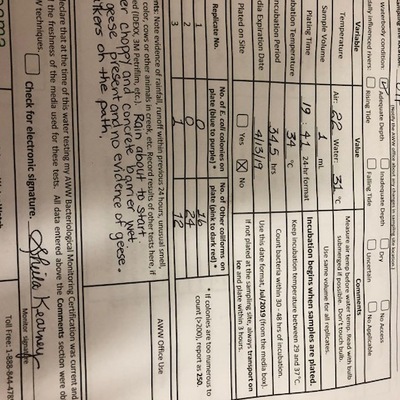 waterbody condition:
Adequate Depth
Inadequate Depth
Dry
No Access
Rising Tide
Falling Tide
Uncertain
No Applicable
Variable
Value
Comments
Temperature
Air: 22 Water: 31 °C
Measure air temp before water temp. Read with bulb
submerged if possible. Don't touch bulb.
Sample Volume
1 mL
Use same volume for all replicates.
Plating Time
19:41 24-hr format
Incubation begins when samples are plated.
Incubation Temperature
34 °C
Keep incubation temperature between 29 and 37 °C.
Incubation Period
34.5 hrs
Count bacteria within 30 - 48 hrs of incubation.
Media Expiration Date
4/13/19
Use this date format, Jul/2019 (from the media box).
Plated on Site
Yes
No
If not plated at the sampling site, always transport on
ice and plate within 3 hours.
Replicate No.
No. of E. coli colonies on
plate (blue to purple) *
No. of Other coliforms on
plate (pink to dark red)
1 0 16
2 0 24
3 1 12
* If colonies are too numerous to
count (>200), report as 250.
AWW Office Use
Note evidence of rainfall, runoff within previous 24 hours, unusual smell,
color, cows or other animals in creek, etc. Record results of other tests here, if
(IDEXX, 3M Petrifilm etc.) Rain about to start.
choppy and concrete barrier wet.
geese present and no evidence of geese.
on the path.
declare that at the time of this water testing my AWW Bacteriological Monitoring Certification was current and
the freshness of the media used for these tests. All data entered above the Comments section were
techniques.
Check for electronic signature.
Sheila Kearney
Monitor signature
Toll free: 1-888-844-478